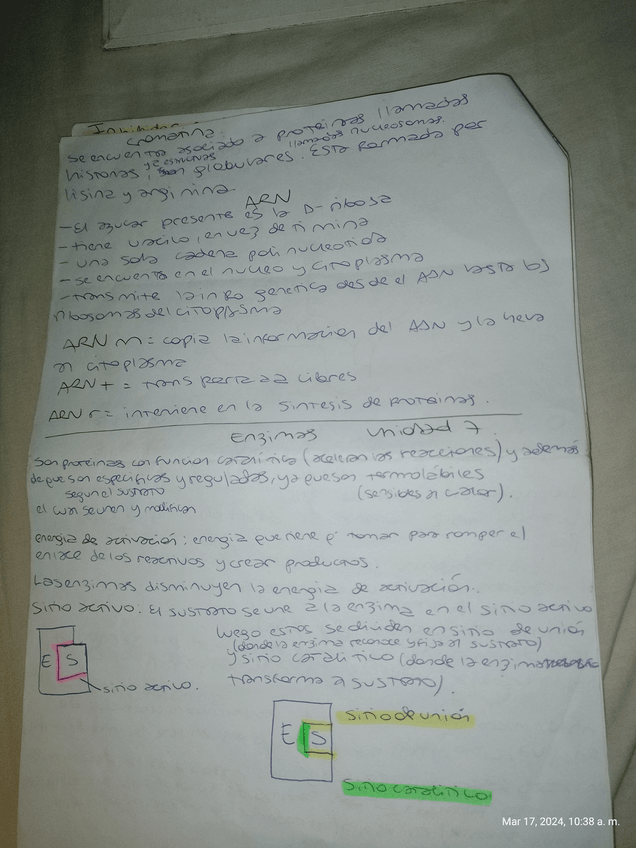 cromatina:
se encuentra asociado a proteinas llamadas
histonas y estructuras globulares llamadas nucleosomas. Esta formada por
lisina y arginina.
ARN
- El azucar presente es la D-ribosa
- tiene uracilo, en vez de timina
- una sola cadena poli nucleotida
- se encuentra en el nucleo y citoplasma
- transmite la info genetica desde el ADN
ribosomas del citoplasma
ARN m = copia la informacion del ADN y la lleva
al citoplasma
ARN t = transporta aa libres
ARN r = interviene en la sintesis de proteinas.
Enzimas unidad 7
son proteinas con funcion catalitica (aceleran las reacciones) y además
de que son especificas y reguladas, ya que son termolábiles
segun el sustrato (sensibles al calor).
el cual se unen y modifican
energia de activación: energia que tiene q' tomar para romper el
enlace de los reactivos y crear productos.
Las enzimas disminuyen la energia de activación.
Sitio activo: El sustrato se une a la enzima en el sitio activo
luego estos se dividen en sitio de unión
(donde la enzima reconoce y fija al sustrato)
y sitio catalitico (donde la enzima
transforma al sustrato).
E S
sitio activo.
E S
sitio de unión
sitio catalitico
Mar 17, 2024, 10:38 a. m.